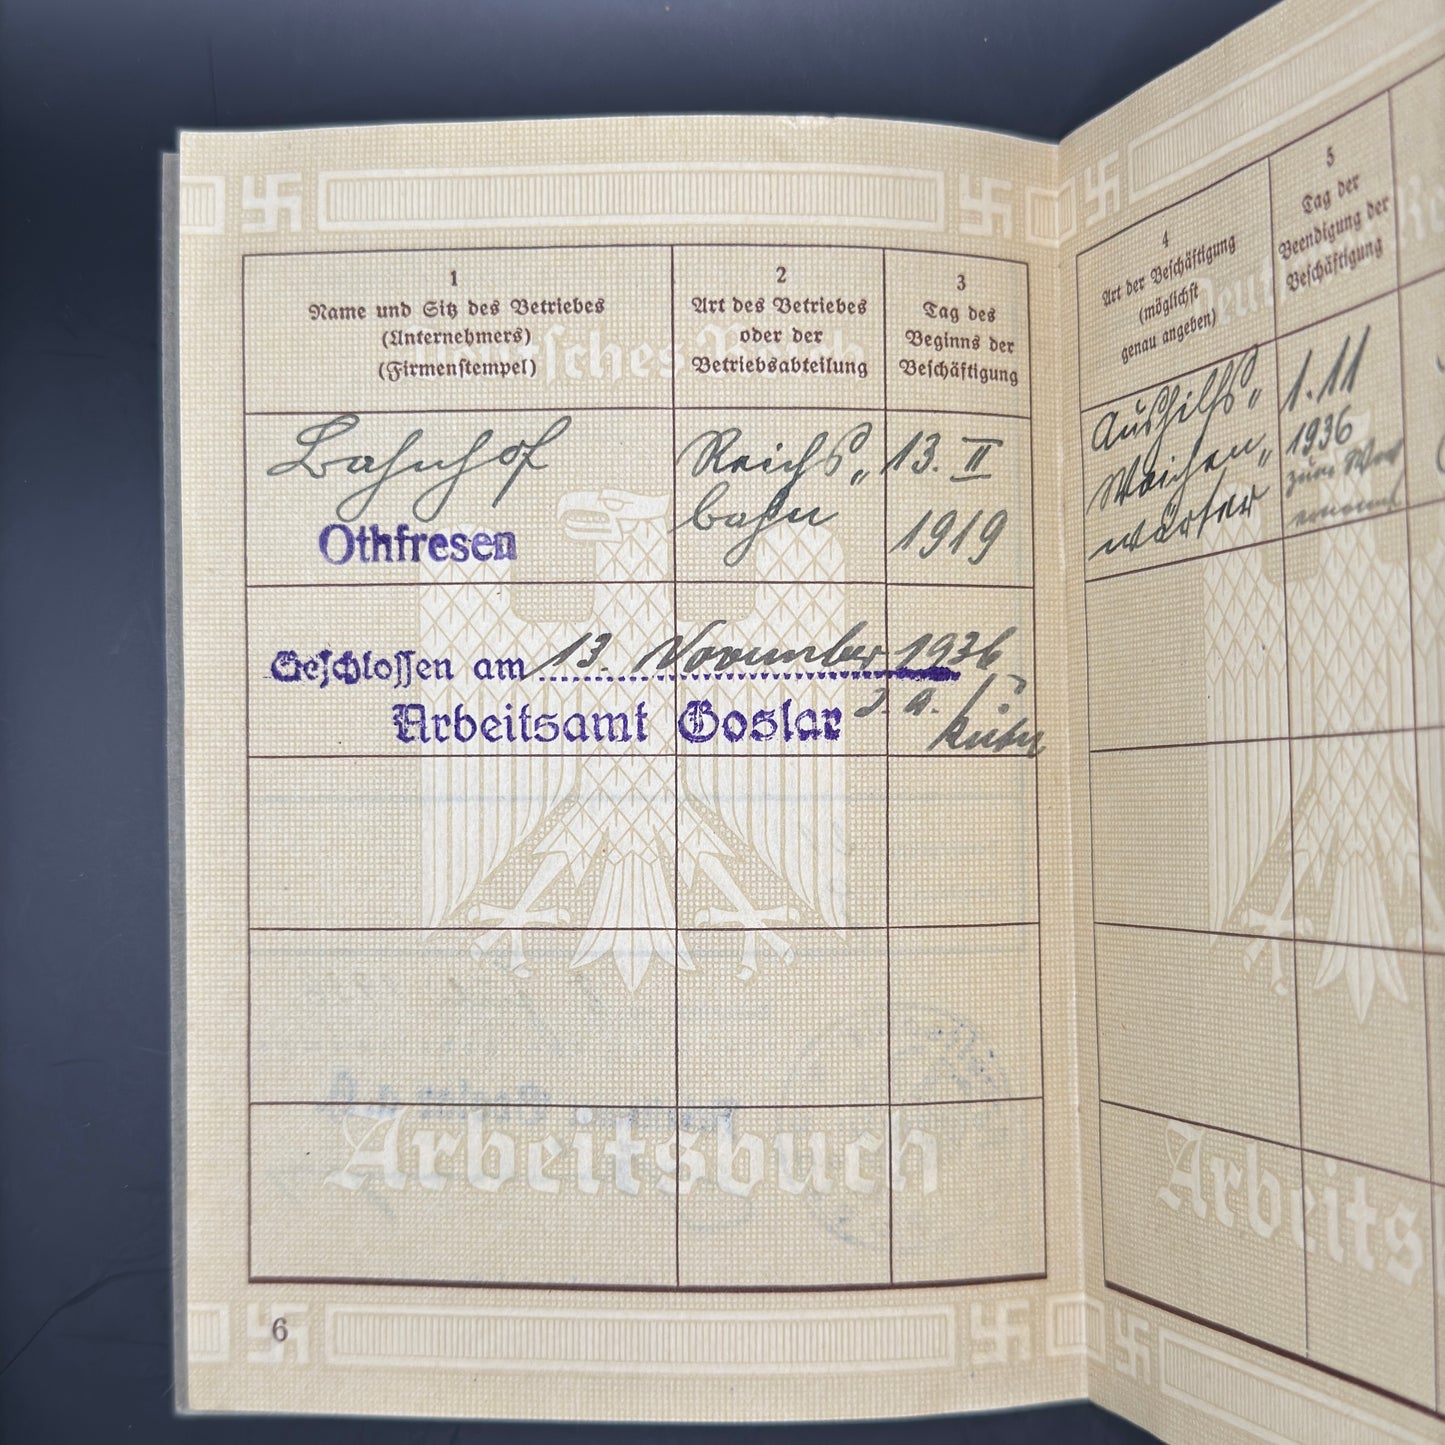 1
Name und Sitz des Betriebes
(Unternehmers)
(Firmenstempel)
2
Art des Betriebes
oder der
Betriebsabteilung
3
Tag des
Beginns der
Beschäftigung
Bahnhof
Othfresen
Reichs„
bahn
13. II
1919
Geschlossen am 13. November 1936
Arbeitsamt Goslar
J. A.
Arbeitsbuch
6
4
Art der Beschäftigung
(möglichst
genau angeben)
5
Tag der
Beendigung der
Beschäftigung
Aushilfs„
Weichen„
wärter
1.11
1936
zum
Arbeits